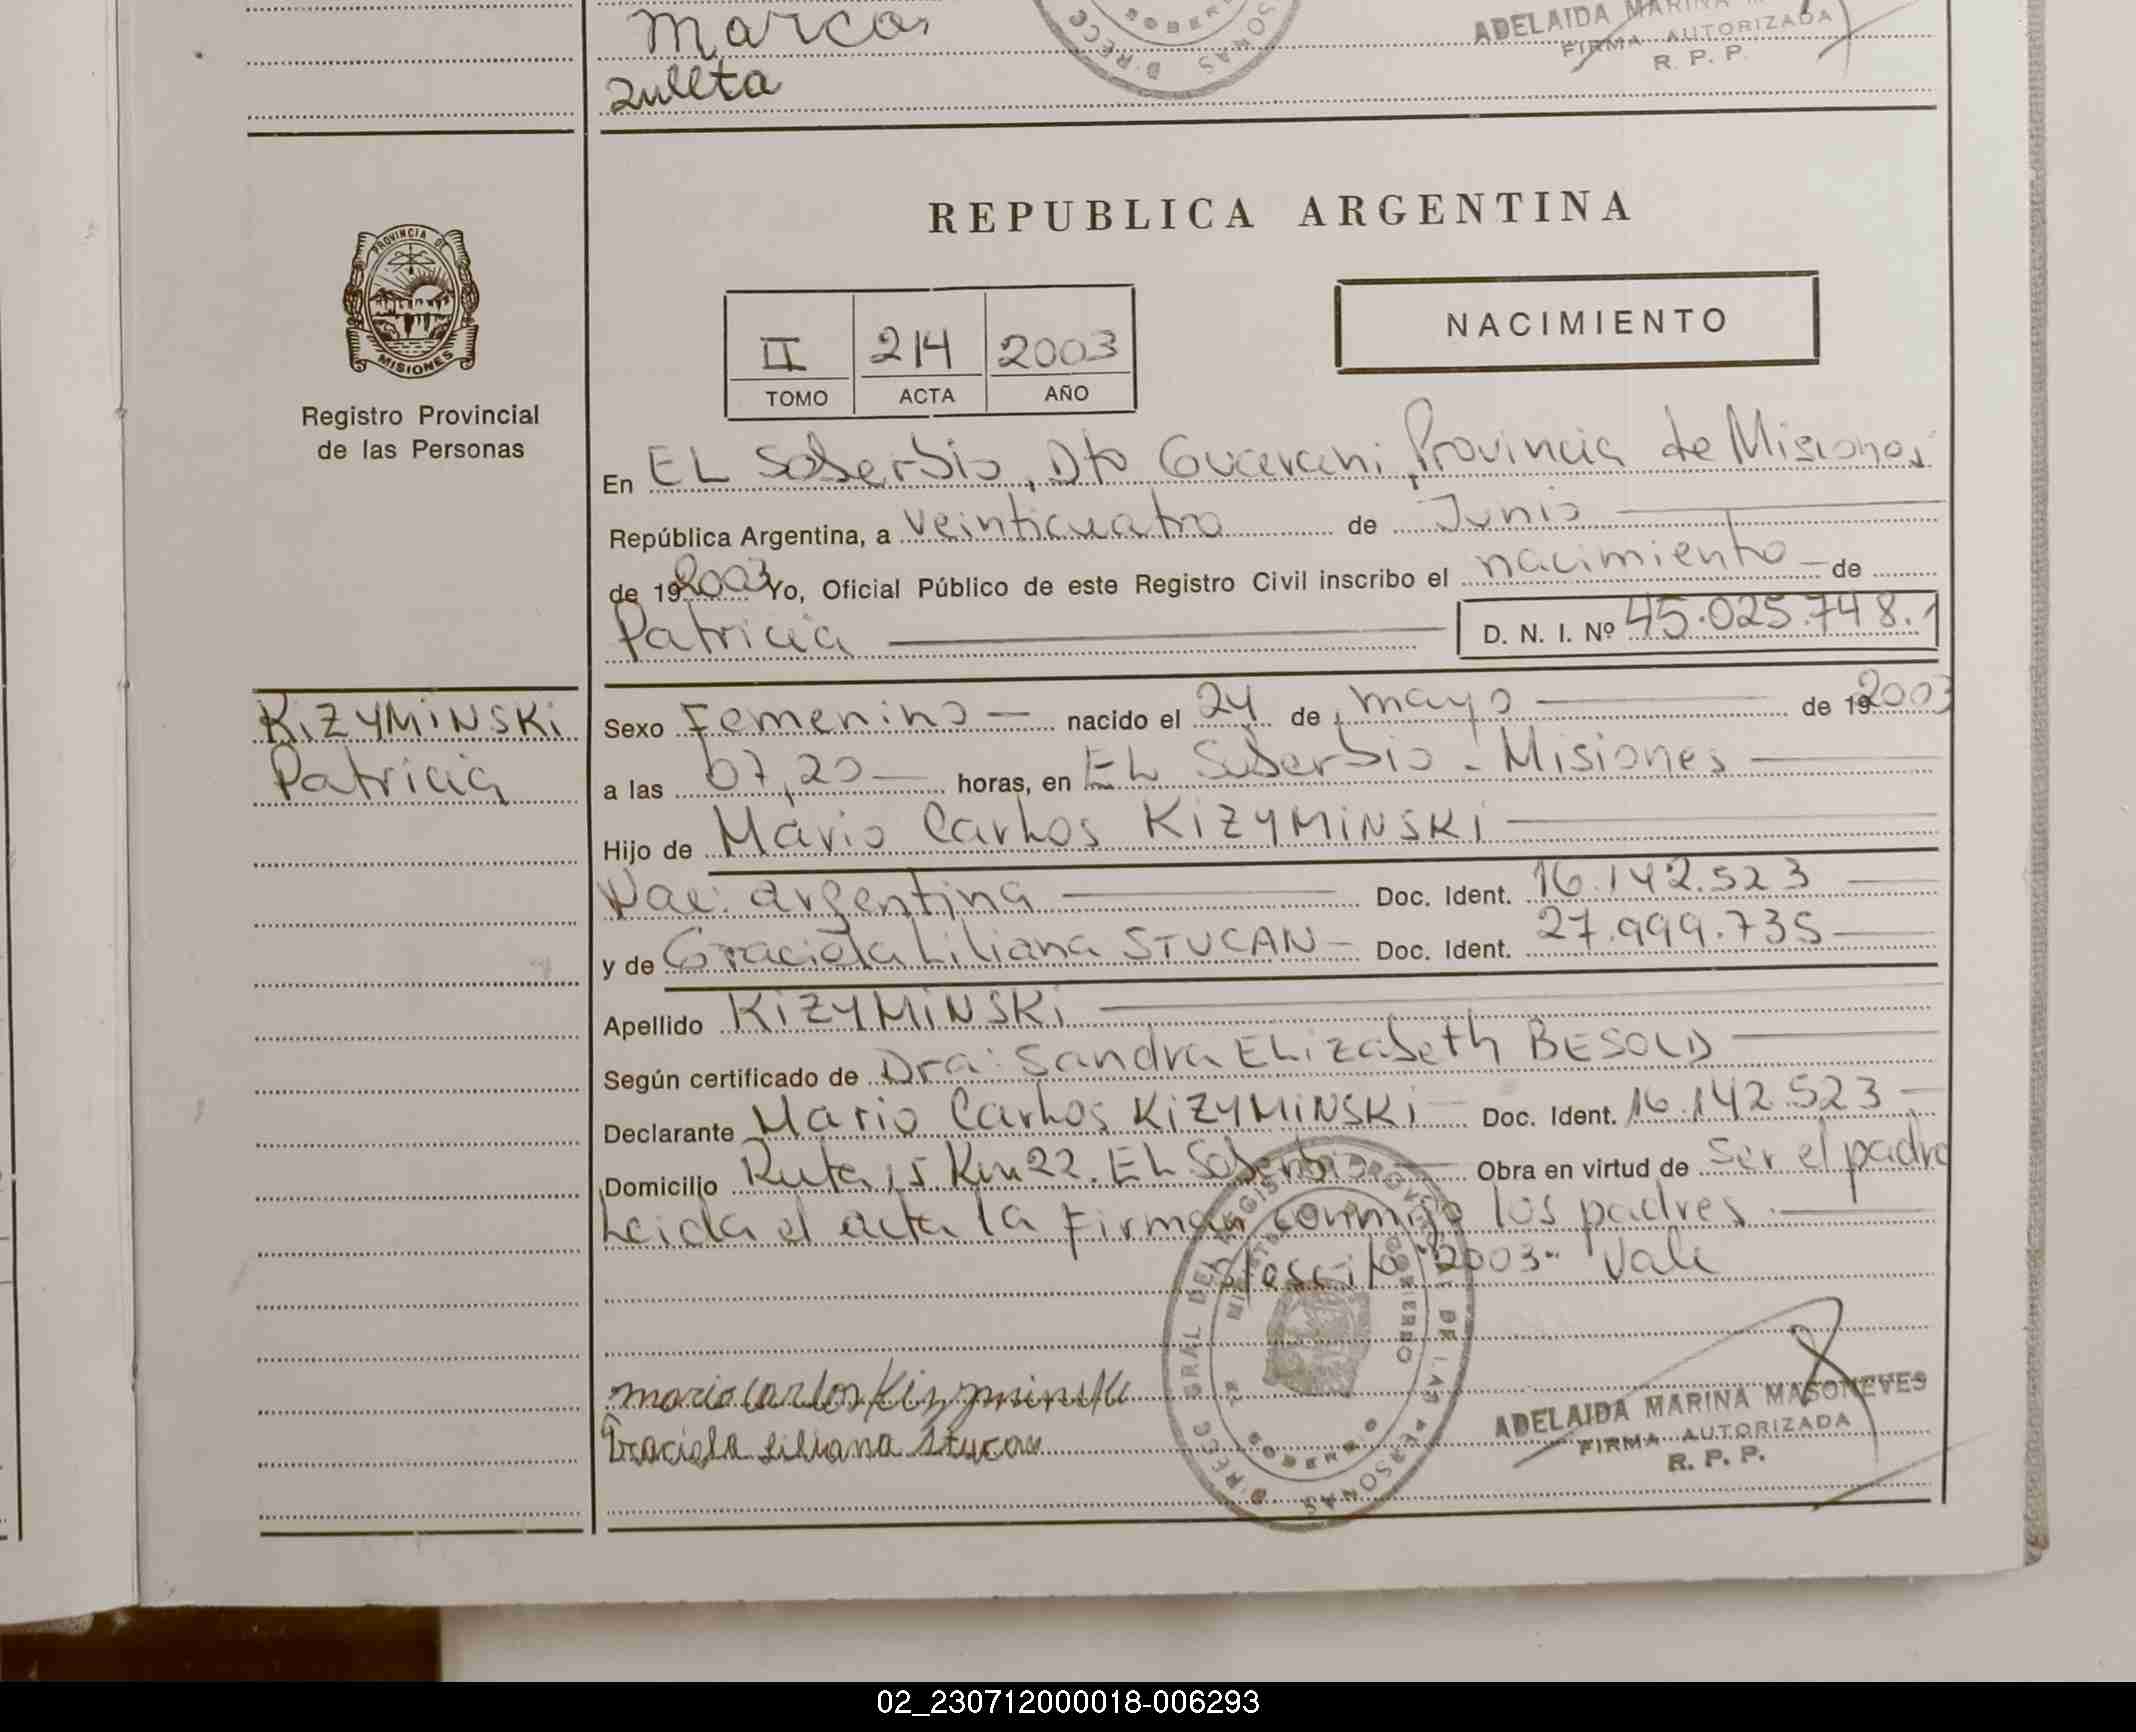 Marcos
Zulleta
ADELAIDA MARINA
FIRMA AUTORIZADA
R. P. P.
REPUBLICA ARGENTINA
PROVINCIA DE
MISIONES
Registro Provincial
de las Personas
II 214 2003
TOMO ACTA AÑO
NACIMIENTO
En EL Soberbio, Dto Guarani, Provincia de Misiones
República Argentina, a veinticuatro de Junio
de 19 2003 Yo, Oficial Público de este Registro Civil inscribo el nacimiento de
Patricia D. N. I. Nº 45.025.748.1
KiZYMiNSKi
Patricia
Sexo Femenino nacido el 24 de mayo de 19 2003
a las 07,20 horas, en EL Soberbio - Misiones
Hijo de Mario Carlos KiZYMiNSKi
Nac: argentina Doc. Ident. 16.142.523
y de Graciela Liliana STUCAN Doc. Ident. 27.999.735
Apellido KiZYMiNSKi
Según certificado de Dra: Sandra ELizabeth BESOLD
Declarante Mario Carlos KiZYMiNSKi Doc. Ident. 16.142.523
Domicilio Ruta 15 Km 22. EL Soberbio Obra en virtud de ser el padre
Leida el acta la firman conmigo los padres
S/escrito "2003" Vale
Mario Carlos Kizyminski
Graciela Liliana Stucan
ADELAIDA MARINA MASONEVES
FIRMA AUTORIZADA
R. P. P.
02_230712000018-006293